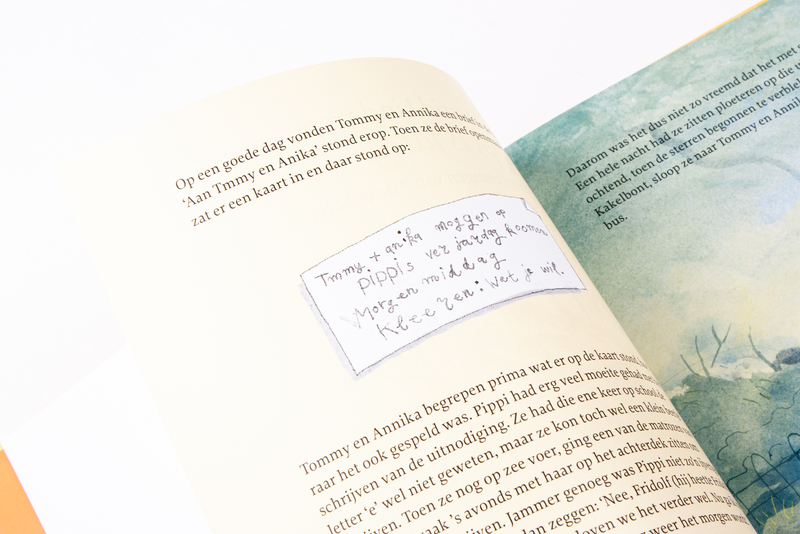 Op een goede dag vonden Tommy en Annika een brief in
'Aan Tmmy en Anika' stond erop. Toen ze de brief
zat er een kaart in en daar stond op:
Tmmy + anika moggen op
pippis ver jardag koomen
Morgen middag
Kleeren: Wet je wil.
Tommy en Annika begrepen prima wat er op de kaart stond,
raar het ook gespeld was. Pippi had erg veel moeite gehad met
schrijven van de uitnodiging. Ze had die ene keer op school
letter 'e' wel niet geweten, maar ze kon toch wel een klein
Toen ze nog op zee voer, ging een van de
's avonds met haar op het achterdek zitten
Jammer genoeg was Pippi niet zo'n
dan zeggen: 'Nee, Fridolf (hij heette
we het verder wel. Nu
weer het morgen
Daarom was het dus niet zo vreemd dat het met
Een hele nacht had ze zitten ploeteren op die
ochtend, toen de sterren begonnen te
Kakelbont, sloop ze naar Tommy en
bus.